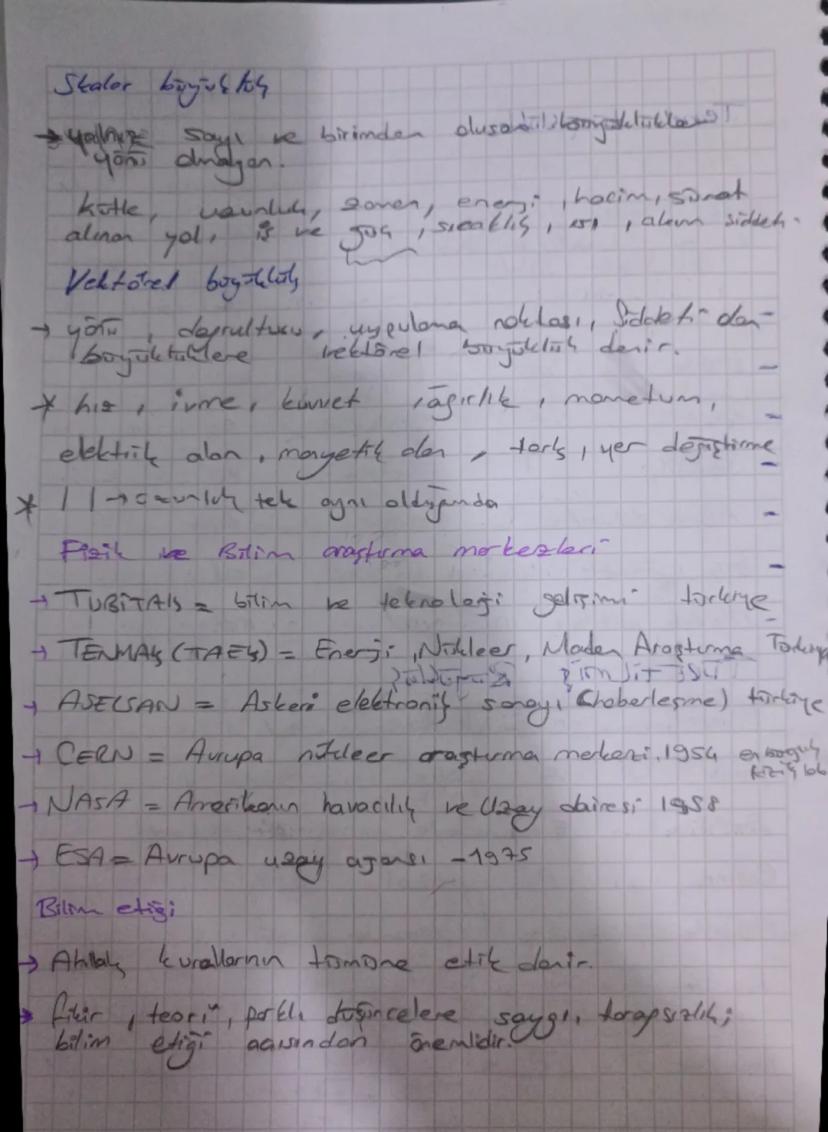 Skaler büyüklük
→ yalnız sayı ve birimden oluşabilir
yönü olmayan.
kütle, uzunluk, zaman, enerji, hacim, sürat
alınan yol, iş ve güç, sıcaklık, ısı, akım şiddeti.
Vektörel büyüklük
→ yönü, doğrultusu, uygulama noktası, Şiddeti olan
büyüklüklere vektörel büyüklük denir.
* hız, ivme, kuvvet, ağırlık, mometum,
elektrik alan, manyetik alan, tork, yer değiştirme
* | | → uzunluk tek aynı olduğunda
Fizik ve Bilim araştırma merkezleri
→ TUBİTAK = bilim ve teknoloji gelişimi türkiye
→ TENMAK (TAEK) = Enerji, Nükleer, Maden Araştırma Türkiye
→ ASELSAN = Askeri elektronik sanayi (haberleşme) türkiye
→ CERN = Avrupa nükleer araştırma merkezi. 1954 en büyük
fizik lab
→ NASA = Amerikanın havacılık ve Uzay dairesi 1958
→ ESA = Avrupa uzay ajansı - 1975
Bilim etiği
→ Ahlak kurallarının tümüne etik denir.
→ fikir, teori, farklı düşüncelere saygı, tarafsızlık;
bilim etiği açısından önemlidir.